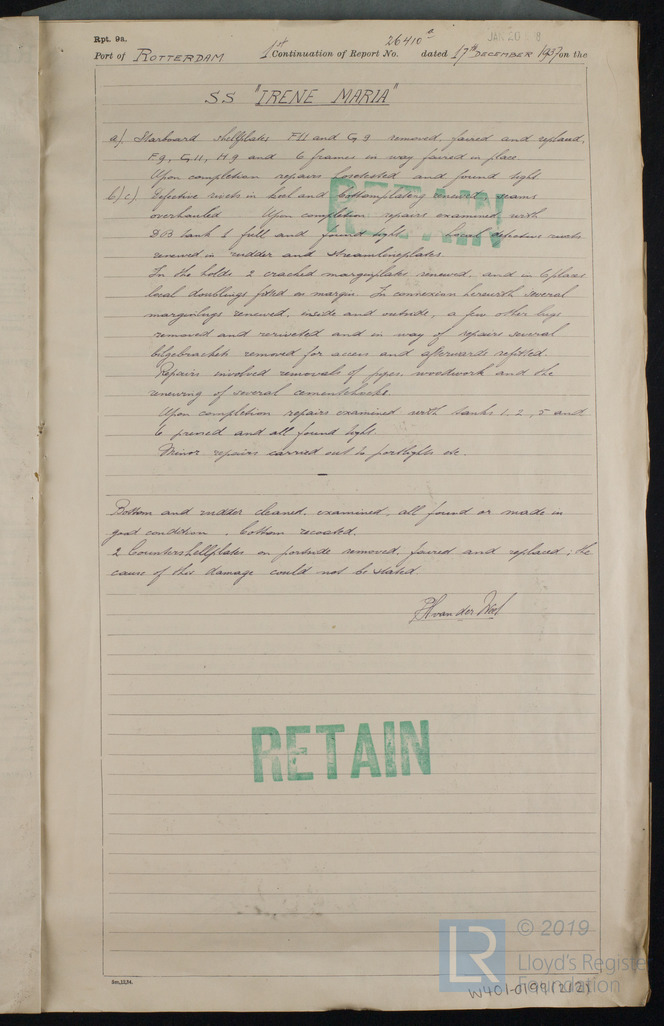 Rpt. 9a.
JAN 20
Port of ROTTERDAM 1st Continuation of Report No. 26410a dated 17th DECEMBER 1937 on the
S.S "IRENE MARIA"
a/. Starboard shellplates F11 and G9 removed, faired and replaced,
F9, G11, H9 and 6 frames in way faired in place.
Upon completion repairs hosetested and found tight
b/c/. Defective rivets in keel and bottomplating renewed, seams
overhauled. Upon completion repairs examined with
DB tank 1 full and found tight. Local defective rivets
renewed in rudder and streamlineplates.
In the holds 2 cracked marginplates renewed, and in 6 places
local doublings fitted on margin. In connexion herewith several
marginlugs renewed, inside and outside, a few other lugs
removed and reriveted and in way of repairs several
bilgebrackets removed for access and afterwards refitted.
Repairs involved removals of pipes, woodwork and the
renewing of several cementchocks.
Upon completion repairs examined with tanks 1, 2, 5 and
6 pressed and all found tight.
Minor repairs carried out to portlights etc.
Bottom and rudder cleaned, examined, all found or made in
good condition, bottom recoated.
2 Countershellplates on portside removed, faired and replaced; the
cause of this damage could not be stated.
van der
RETAIN
RETAIN
© 2019
LR
Lloyd's Register
Foundation
W401-0199(2/2)